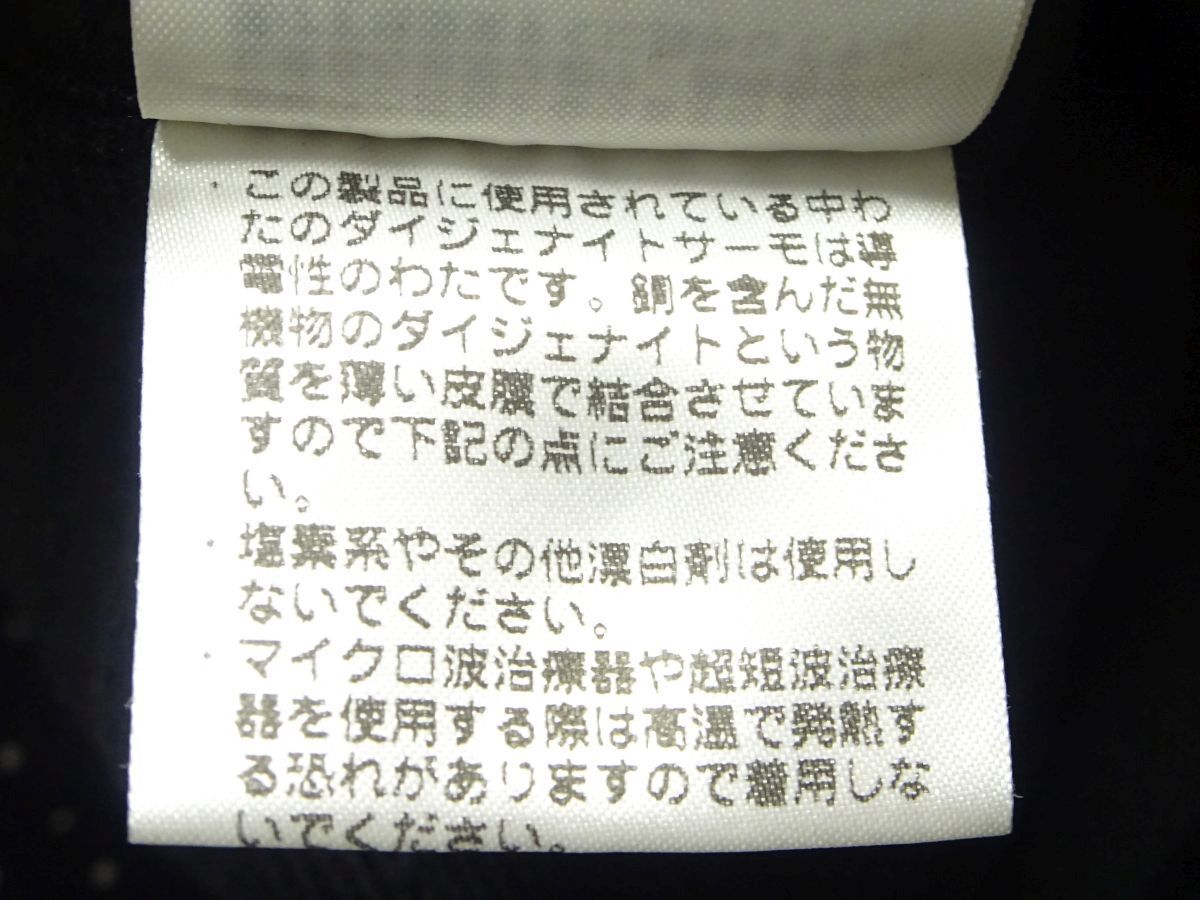 ・この製品に使用されている中わ
たのダイジェナイトサーモは導
電性のわたです。銅を含んだ無
機物のダイジェナイトという物
質を薄い皮膜で結合させていま
すので下記の点にご注意くださ
い。
・塩素系やその他漂白剤は使用し
ないでください。
・マイクロ波治療器や超短波治療
器を使用する際は高温で発熱す
る恐れがありますので着用しな
いでください。